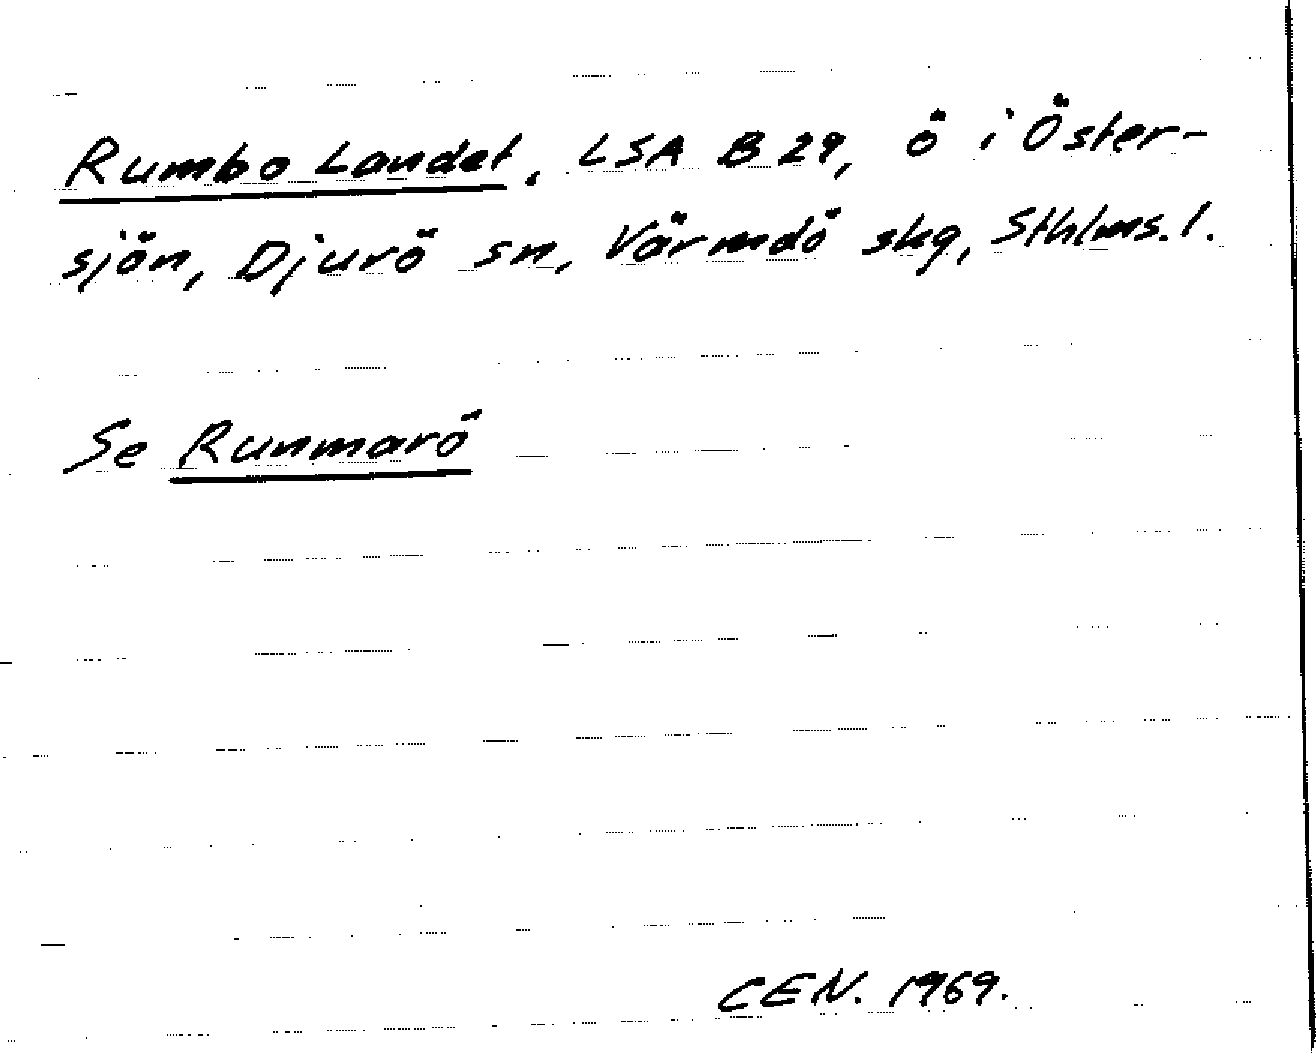 Rumbo Landet, LSA B 29, ö i Öster-
sjön, Djurö sn, Värmdö skg, Sthlms. l.
Se Runmarö
CEN. 1969.